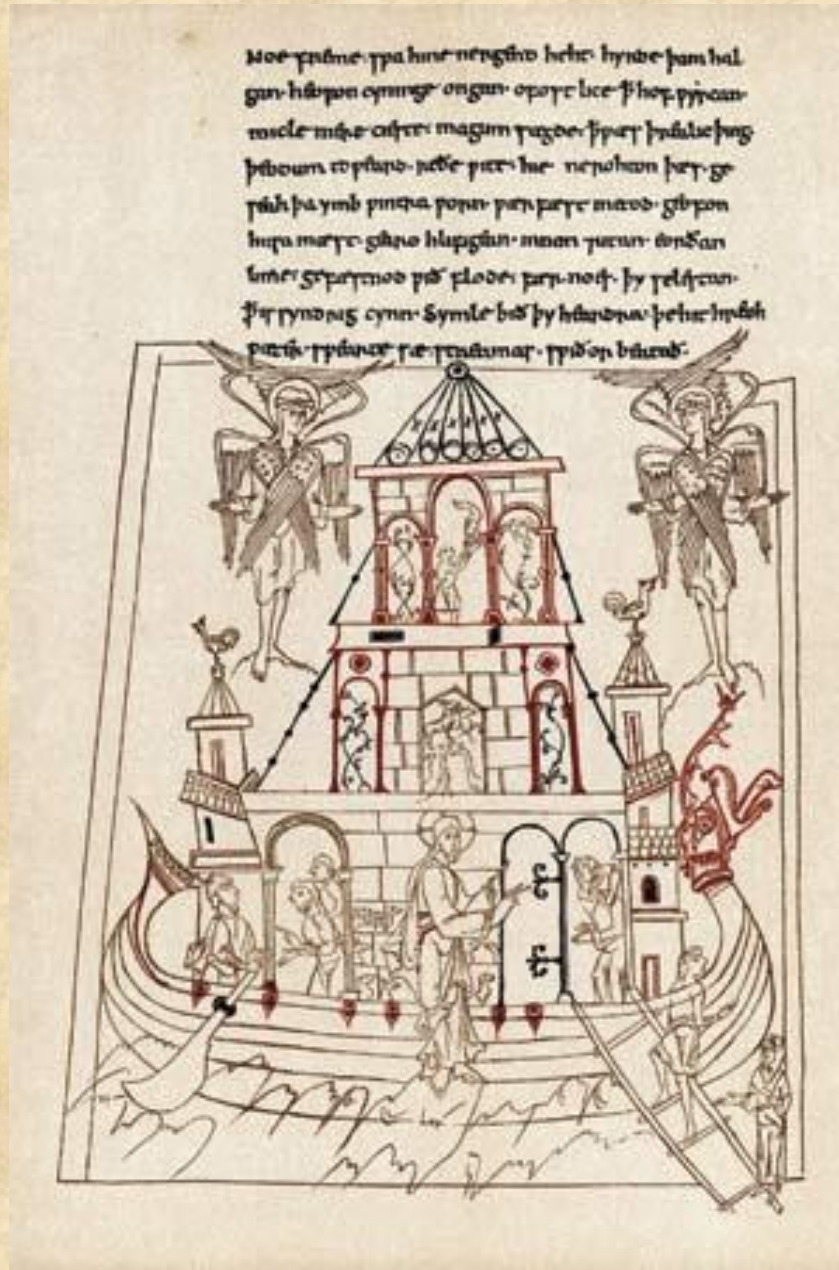 Noe freme· sƿa hine nergend heht· hyrde þam hal
gan· heofon cyninge ongan· ofost lice ꝥ hof ƿyrcan·
micle mere cieste· magum sægde· ꝥ ƿæs þrealic þing·
þeodum toƿeard· reðe ƿite· hie ne rohton þæs· ge
seah þa ymb ƿintra ƿorn· ƿær fæst metod· geofon
husa mæst· gearo hlifigean· innan ⁊utan· eorðan
lime· gefæstnod ƿið flode· fær· noes· þy selestan·
ꝥ is syndrig cynn· Symle bið þy heardra· þe hit hreoh
ƿæter· sƿearte sæ streamas· sƿiðor beatað·